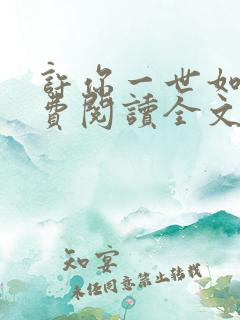 許你一世如
費閱讀全文
知宴
未经同意禁止转载